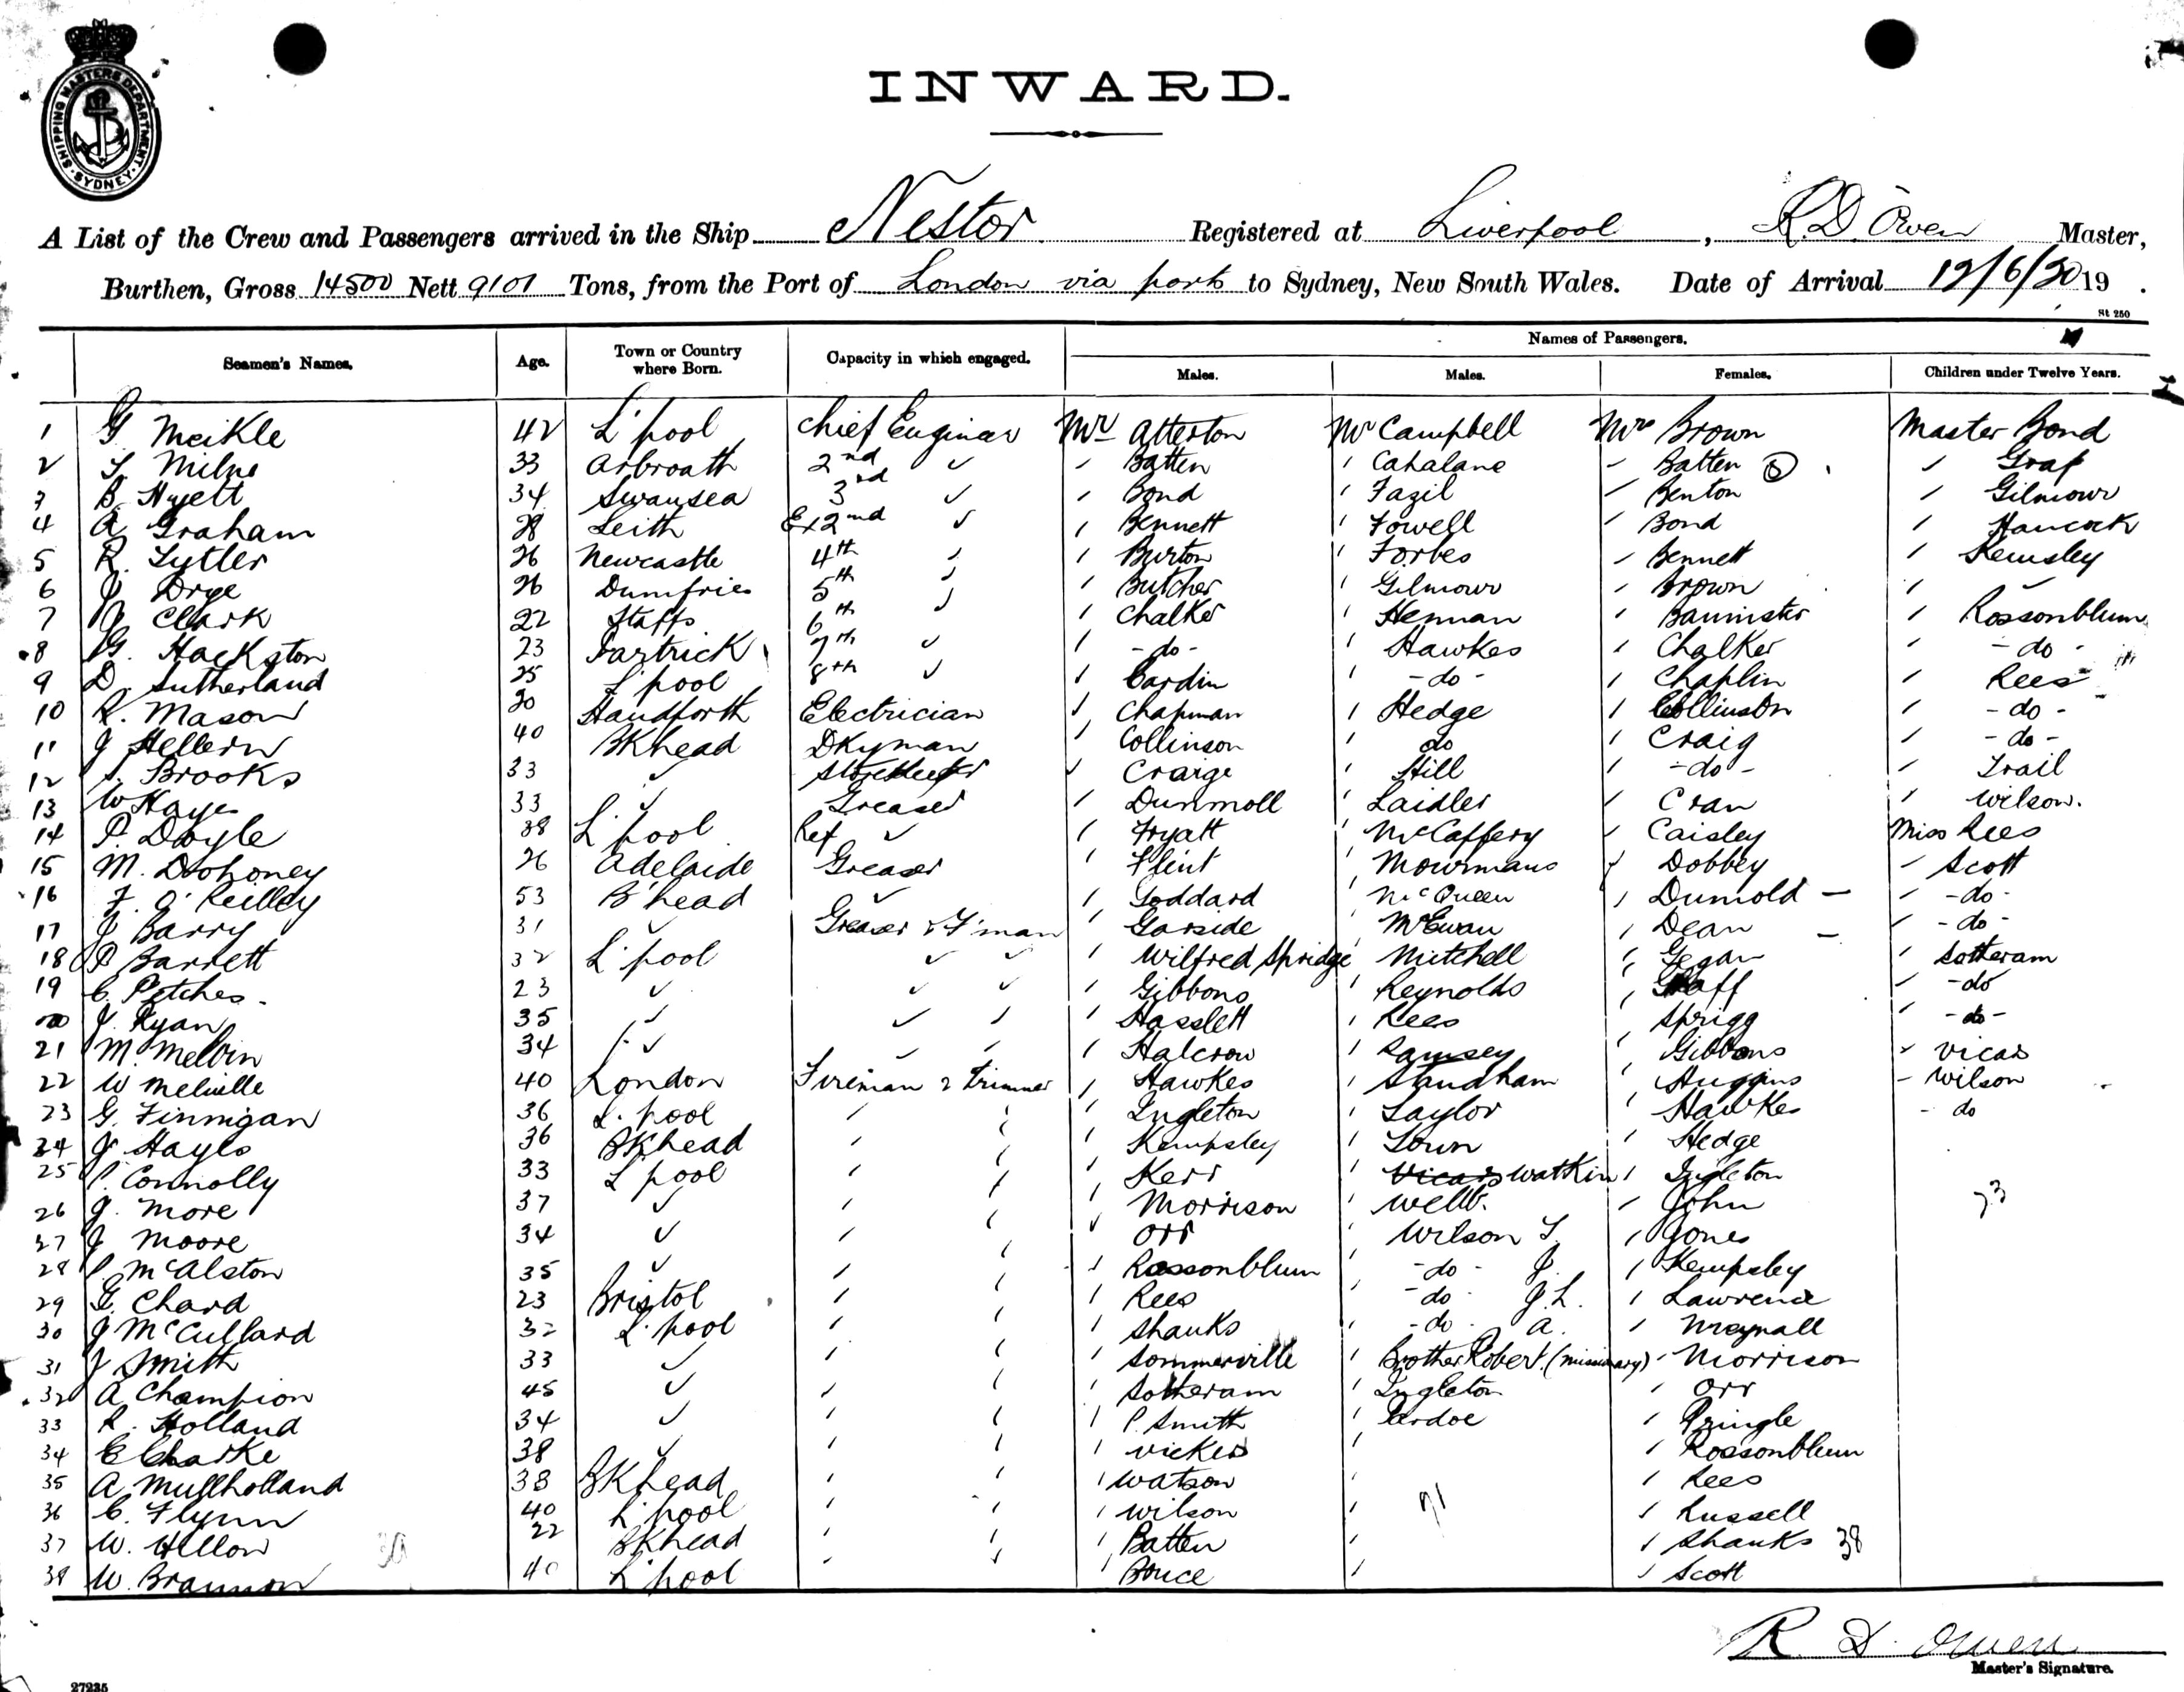 SHIPPING MASTERS DEPARTMENT. SYDNEY.
INWARD.
A List of the Crew and Passengers arrived in the Ship Nestor Registered at Liverpool, R.D. Owen Master,
Burthen, Gross 14500 Nett 9101 Tons, from the Port of London via ports to Sydney, New South Wales. Date of Arrival 12/6/20 19 .
St 250
Seamen's Names. Age. Town or Country where Born. Capacity in which engaged. Names of Passengers.
Males. Males. Females. Children under Twelve Years.
1 G Meikle 42 L'pool Chief Engineer Mr Atterton Mr Campbell Mrs Brown Master Bond
2 Milne 33 Arbroath 2nd ✓ Batten Cahalane Batten Graf
3 B. Hyett 34 Swansea 3rd ✓ Bond Fazil Benton Gilmour
4 A Graham 28 Leith Ex 2nd ✓ Bennett Fowell Bond Hancock
5 R. Tytler 26 Newcastle 4th Burton Forbes Bennett Kemsley
6 J Drye 26 Dumfries 5th Butcher Gilmour Brown
7 Clark 22 Staffs 6th Chalker Henman Bannister Rossonblum
8 Hackston 23 Partrick 7th ✓ - do - Hawkes Chalker - do -
9 D. Sutherland 25 L'pool 8th ✓ Cardin - do - Chaplin Rees
10 R. Mason 20 Handforth Electrician Chapman Hedge Collinson - do -
11 J Hellern 40 BKhead DKyman Collinson do Craig - do -
12 Brooks 33 ✓ Storekeeper Craige Hill - do - Trail
13 W Hayes 33 ✓ Greaser Dunmoll Laidler Cran Wilson.
14 P. Doyle 38 L'pool Ref ✓ Fryatt McCaffery Caisley Miss Rees
15 M. Dohoney 26 Adelaide Greaser Flint Mowrmans Dobbey Scott
16 F. O'Reilley 53 B'head ✓ Goddard McQueen Dumold - - do -
17 J Barry 31 ✓ Greaser & F'man Garside McEwan Dean - - do -
18 P Barrett 32 L'pool ✓ ✓ Wilfred Spridge Mitchell Gegan Sotheram
19 C. Petches. 23 ✓ ✓ ✓ Gibbons Reynolds Graff - do
20 J. Ryan 35 ✓ ✓ Hasslett Rees Sprigg - do -
21 M. Melvin 34 ✓ Halcrow Ramsey Gibbons Vicars
22 W Melville 40 London Fireman & Trimmer Hawkes Standham Huggins Wilson
23 G. Finnigan 36 L'pool Ingleton Taylor Hawkes do
24 J Hayls 36 BKhead Kempsley Town Hedge
25 P. Connolly 33 L'pool Kerr Vicars Watkin Ingleton
26 J. More 37 ✓ Morrison Webb. John 23
27 J Moore 34 ✓ Orr Wilson T. Jones
28 P. McAlston 35 ✓ Rossonblum - do - J. Kempsley
29 G. Chard 23 Bristol Rees - do - J.L. Lawrence
30 J McCullard 32 L'pool Shanks - do - A. Meynall
31 J Smith 33 ✓ Sommerville Brother Robert. (missionary) Morrison
32 A Champion 45 ✓ Sotheram Ingleton Orr
33 R. Holland 34 ✓ P. Smith Pardoe Pringle
34 E Clarke 38 ✓ Vickers Rossonblum
35 A Mullholland 38 BKhead Watson Rees
36 C. Flynn 40 L'pool Wilson 71 Russell
37 W. Hellon 22 BKhead Batten Shanks 38
38 W. Brannon 40 L'pool Bouce Scott
R. D. Owen
Master's Signature.
27235